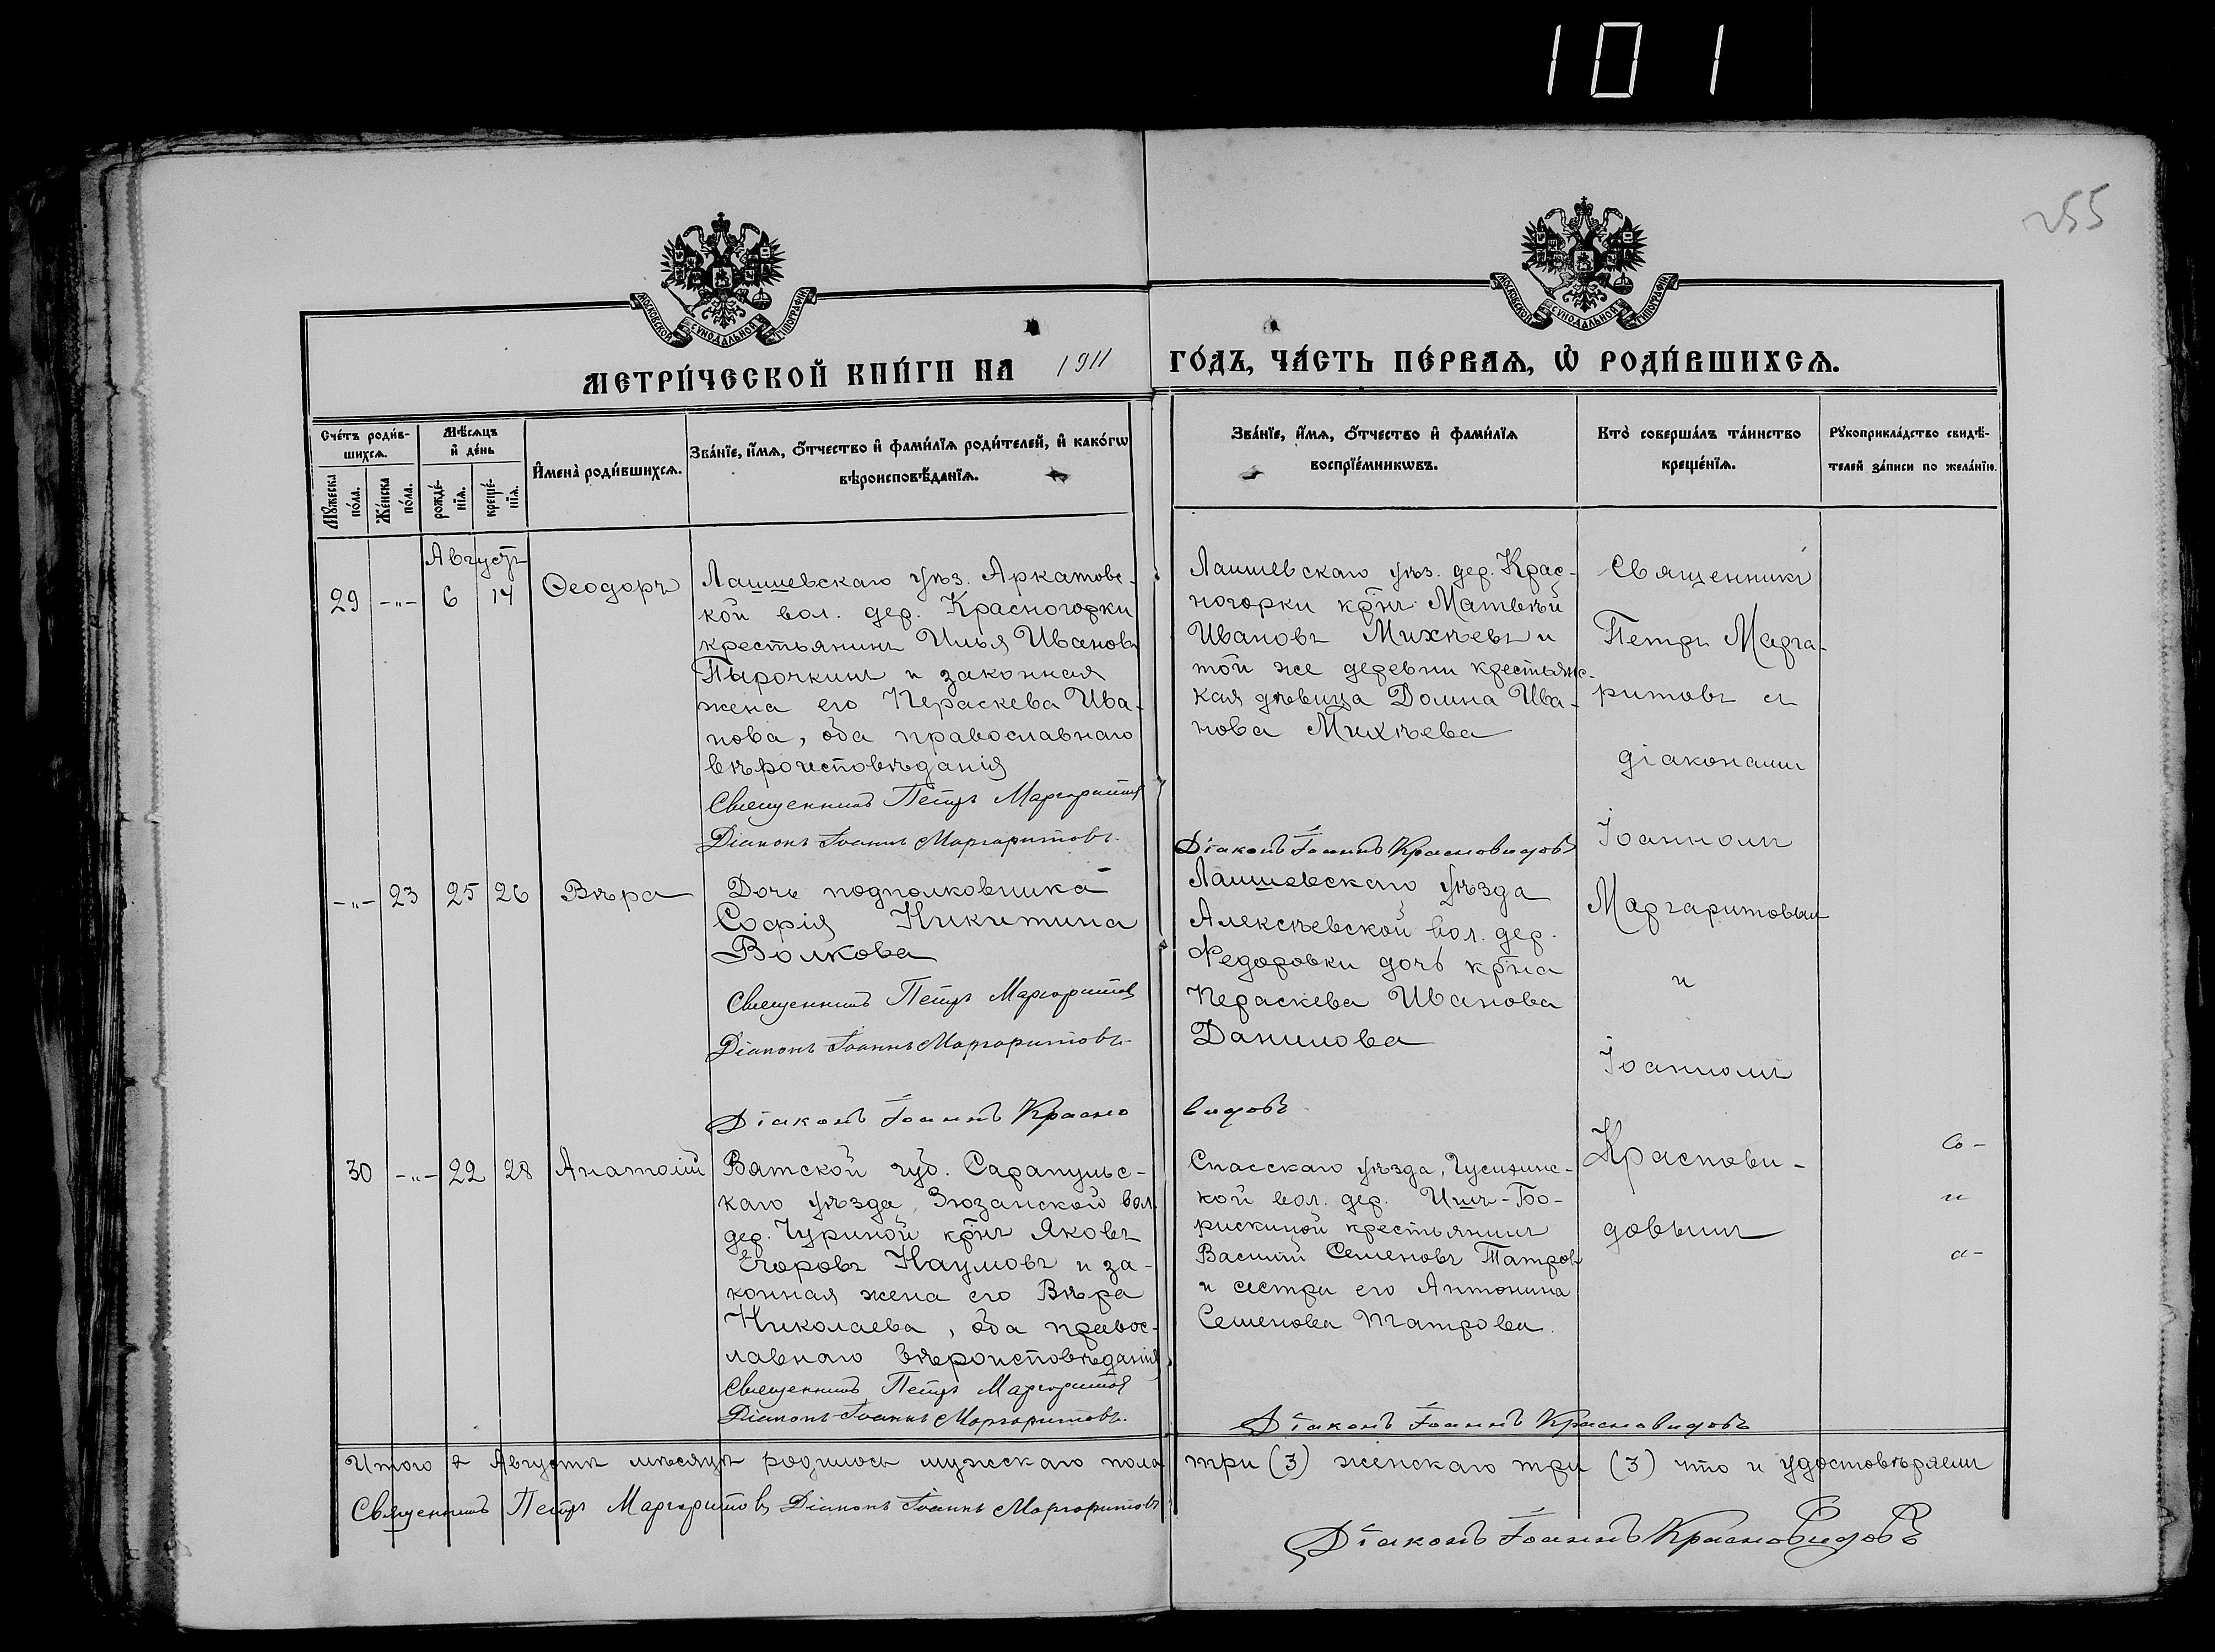 101
255
МОСКОВСКОЙ СѴНОДАЛЬНОЙ ТИПОГРАФІИ
МОСКОВСКОЙ СѴНОДАЛЬНОЙ ТИПОГРАФІИ
МЕТРИ́ЧЕСКОЙ КНИ́ГИ НА 1911 ГО́ДЪ, ЧА́СТЬ ПЕ́РВАѦ, Ѡ҆ РОДИ́ВШИХСѦ.
Сче́тъ роди́в-
шихсѧ.
Мꙋ́жеска по́ла.
Же́нска по́ла.
Мѣ́сѧцъ
и҆ де́нь
рожде́-
нїѧ.
креще́-
нїѧ.
И҆мена̀ роди́вшихсѧ.
Зва́нїе, и҆́мѧ, ѻ҆́тчество и҆ фами́лїѧ роди́телей, и҆ како́гѡ
вѣроисповѣ́данїѧ.
Зва́нїе, и҆́мѧ, ѻ҆́тчество и҆ фами́лїѧ
воспрїе́мникѡвъ.
Кто̀ соверша́лъ та́инство
креще́нїѧ.
Рꙋкоприкла́дство свидѣ́-
телей за́писи по жела́нїю.
Августъ
29 -"- 6 14 Ѳеодоръ
Лаишевскаго уѣз. Аркатовс-
кой вол. дер. Красногорки
крестьянинъ Илья Ивановъ
Парочкинъ и законная
жена его Параскева Ива-
нова, оба православнаго
вѣроисповѣданія
Священникъ Петръ Маргаритовъ
Діаконъ Іоаннъ Маргаритовъ.
Лаишевскаго уѣз. дер. Крас-
ногорки кр̃нъ Матвѣй
Ивановъ Михѣевъ и
той же деревни крестьянс-
кая дѣвица Домна Ива-
нова Михѣева
Діаконъ Іоаннъ Красновидовъ
Священникъ
Петръ Марга-
ритовъ съ
діаконами
Іоанномъ
Маргаритовым
и
Іоанномъ
Краснови-
довымъ
-"- 23 25 26 Вѣра
Дочь подполковника
Софія Никитина
Волкова
Священникъ Петръ Маргаритовъ
Діаконъ Іоаннъ Маргаритовъ
Діаконъ Іоаннъ Красно видовъ
Лаишевскаго уѣзда
Алексѣевской вол. дер.
Федоровки дочь кр̃на
Параскева Иванова
Данилова
30 -"- 22 28 Анатолій
Вятской губ. Сарапульс-
каго уѣзда, Зюзинской вол.
дер. Чуриной кр̃нъ Яковъ
Егоровъ Наумовъ и за-
конная жена его Вѣра
Николаева, оба правос-
лавнаго вѣроисповѣданія
Священникъ Петръ Маргаритовъ
Діаконъ Іоаннъ Маргаритовъ.
Спасскаго уѣзда,
кой вол. дер. Бо-
рискиной крестьянинъ
Василій Семеновъ Татров
и сестра его Антонина
Семенова Татрова.
Діаконъ Іоаннъ Красновидовъ
Итого въ Августѣ мѣсяцѣ родилось мужскаго пола три (3) женскаго три (3) что и удостовѣряемъ
Священникъ Петръ Маргаритовъ Діаконъ Іоаннъ Маргаритовъ
Діаконъ Іоаннъ Красновидовъ